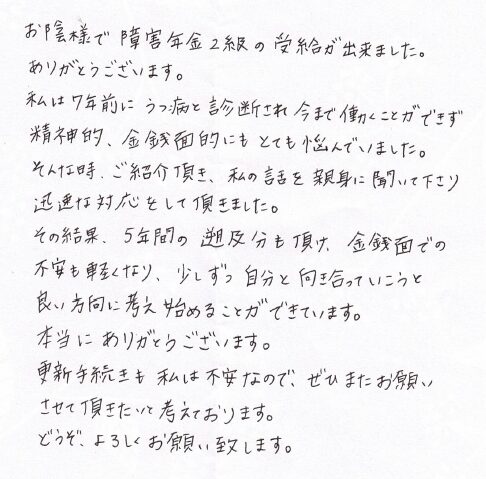 お陰様で障害年金2級の受給が出来ました。
ありがとうございます。
私は7年前にうつ病と診断され今まで働くことができず
精神的、金銭面的にもとても悩んでいました。
そんな時、ご紹介頂き、私の話を親身に聞いて下さり
迅速な対応をして頂きました。
その結果、5年間の遡及分も頂け、金銭面での
不安も軽くなり、少しずつ自分と向き合っていこうと
良い方向に考え始めることができています。
本当にありがとうございます。
更新手続きも私は不安なので、ぜひまたお願い
させて頂きたいと考えております。
どうぞ、よろしくお願い致します。